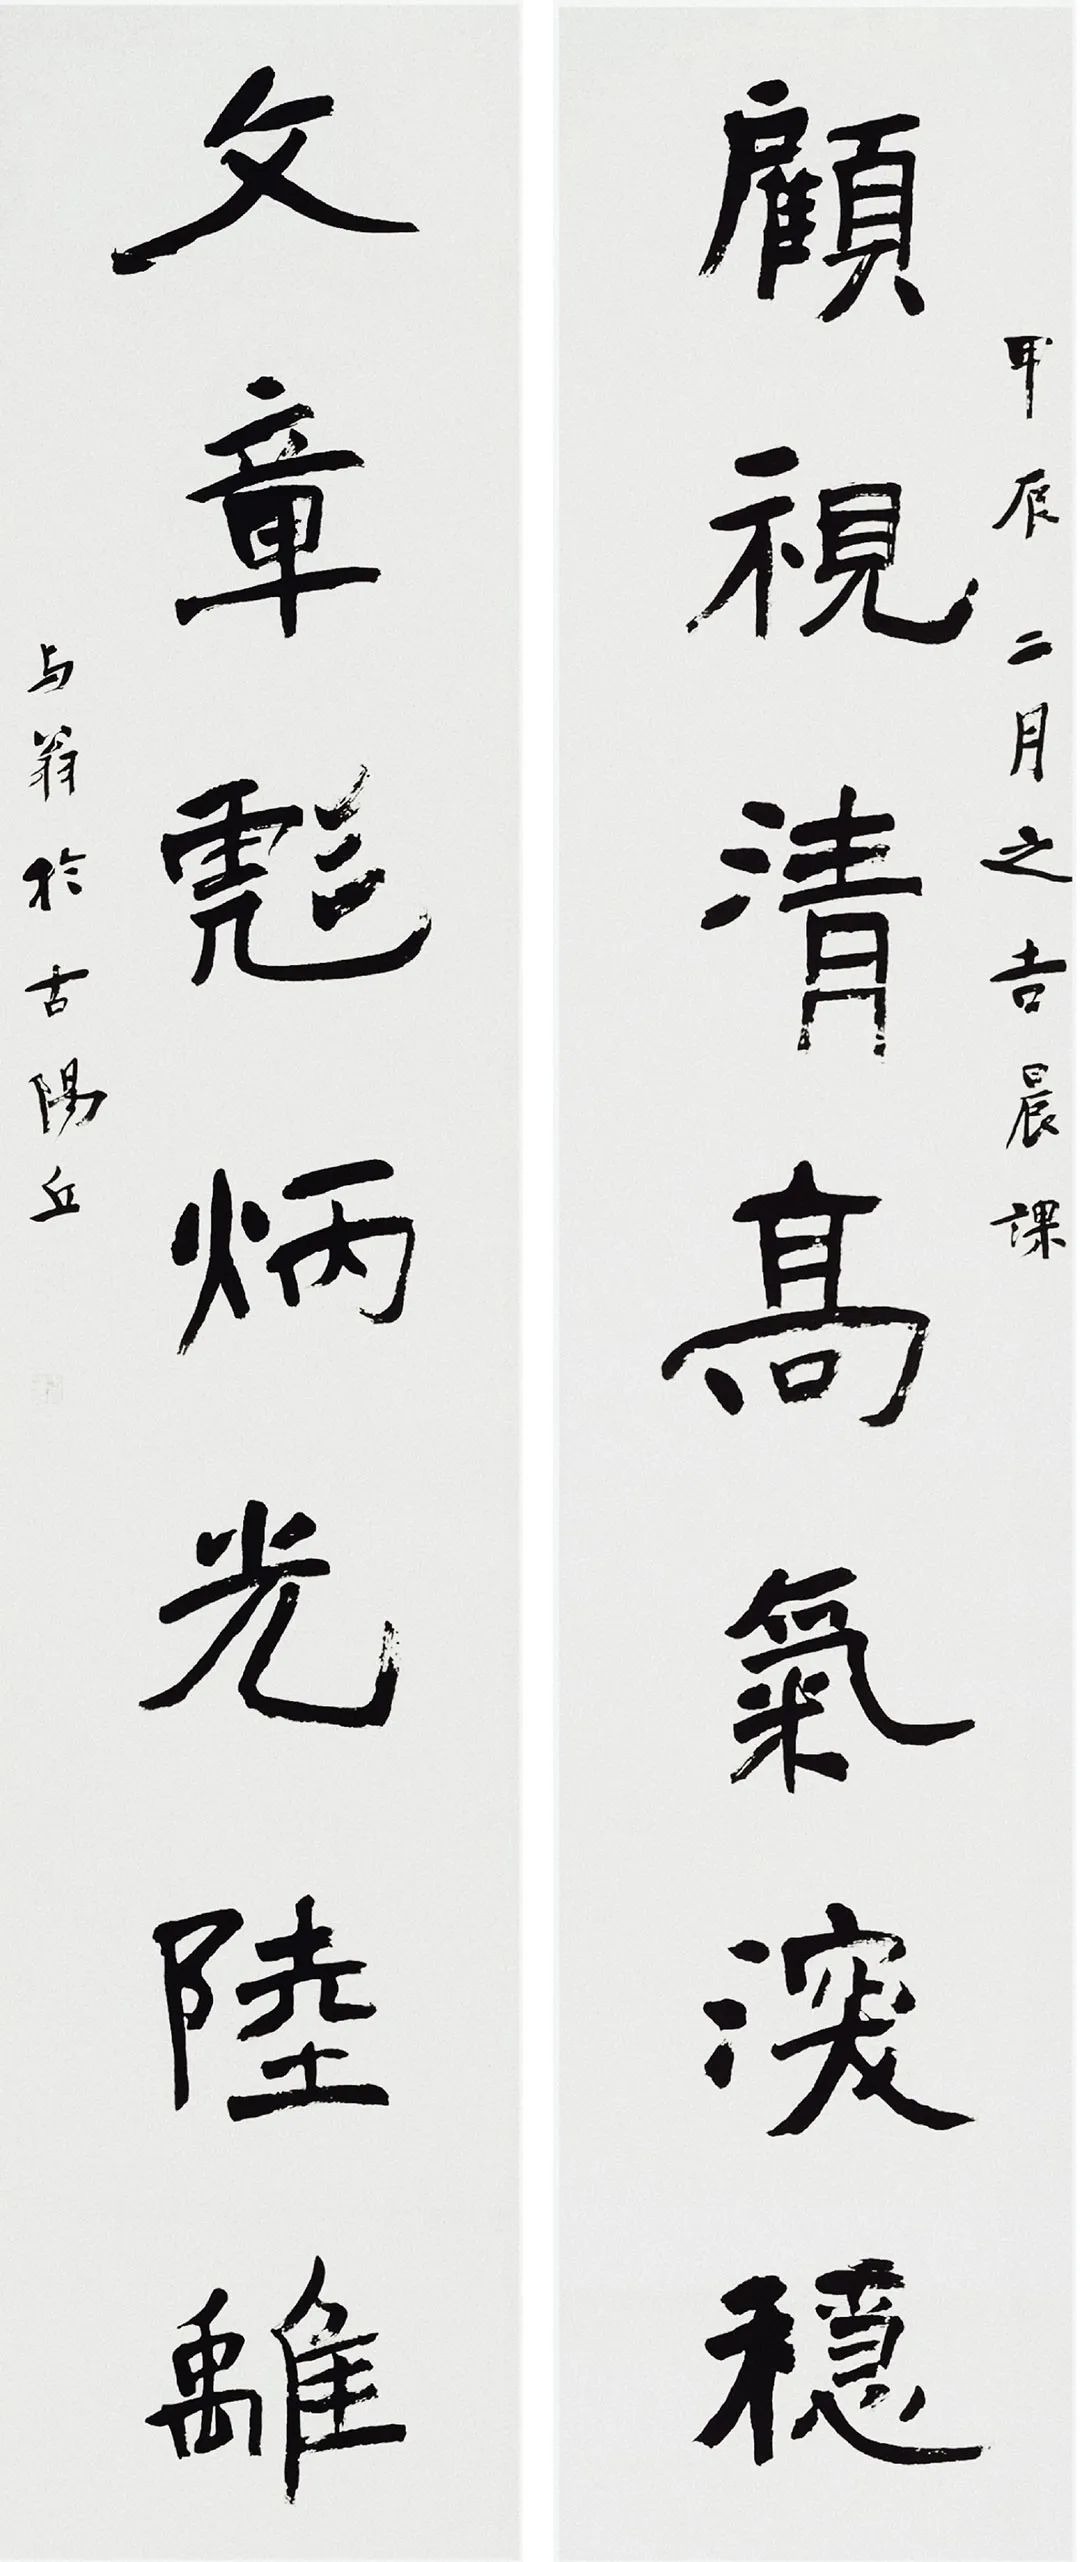 甲辰二月之吉晨課
顧視清高氣深穩
文章彪炳光陸離
与翁於古陽丘